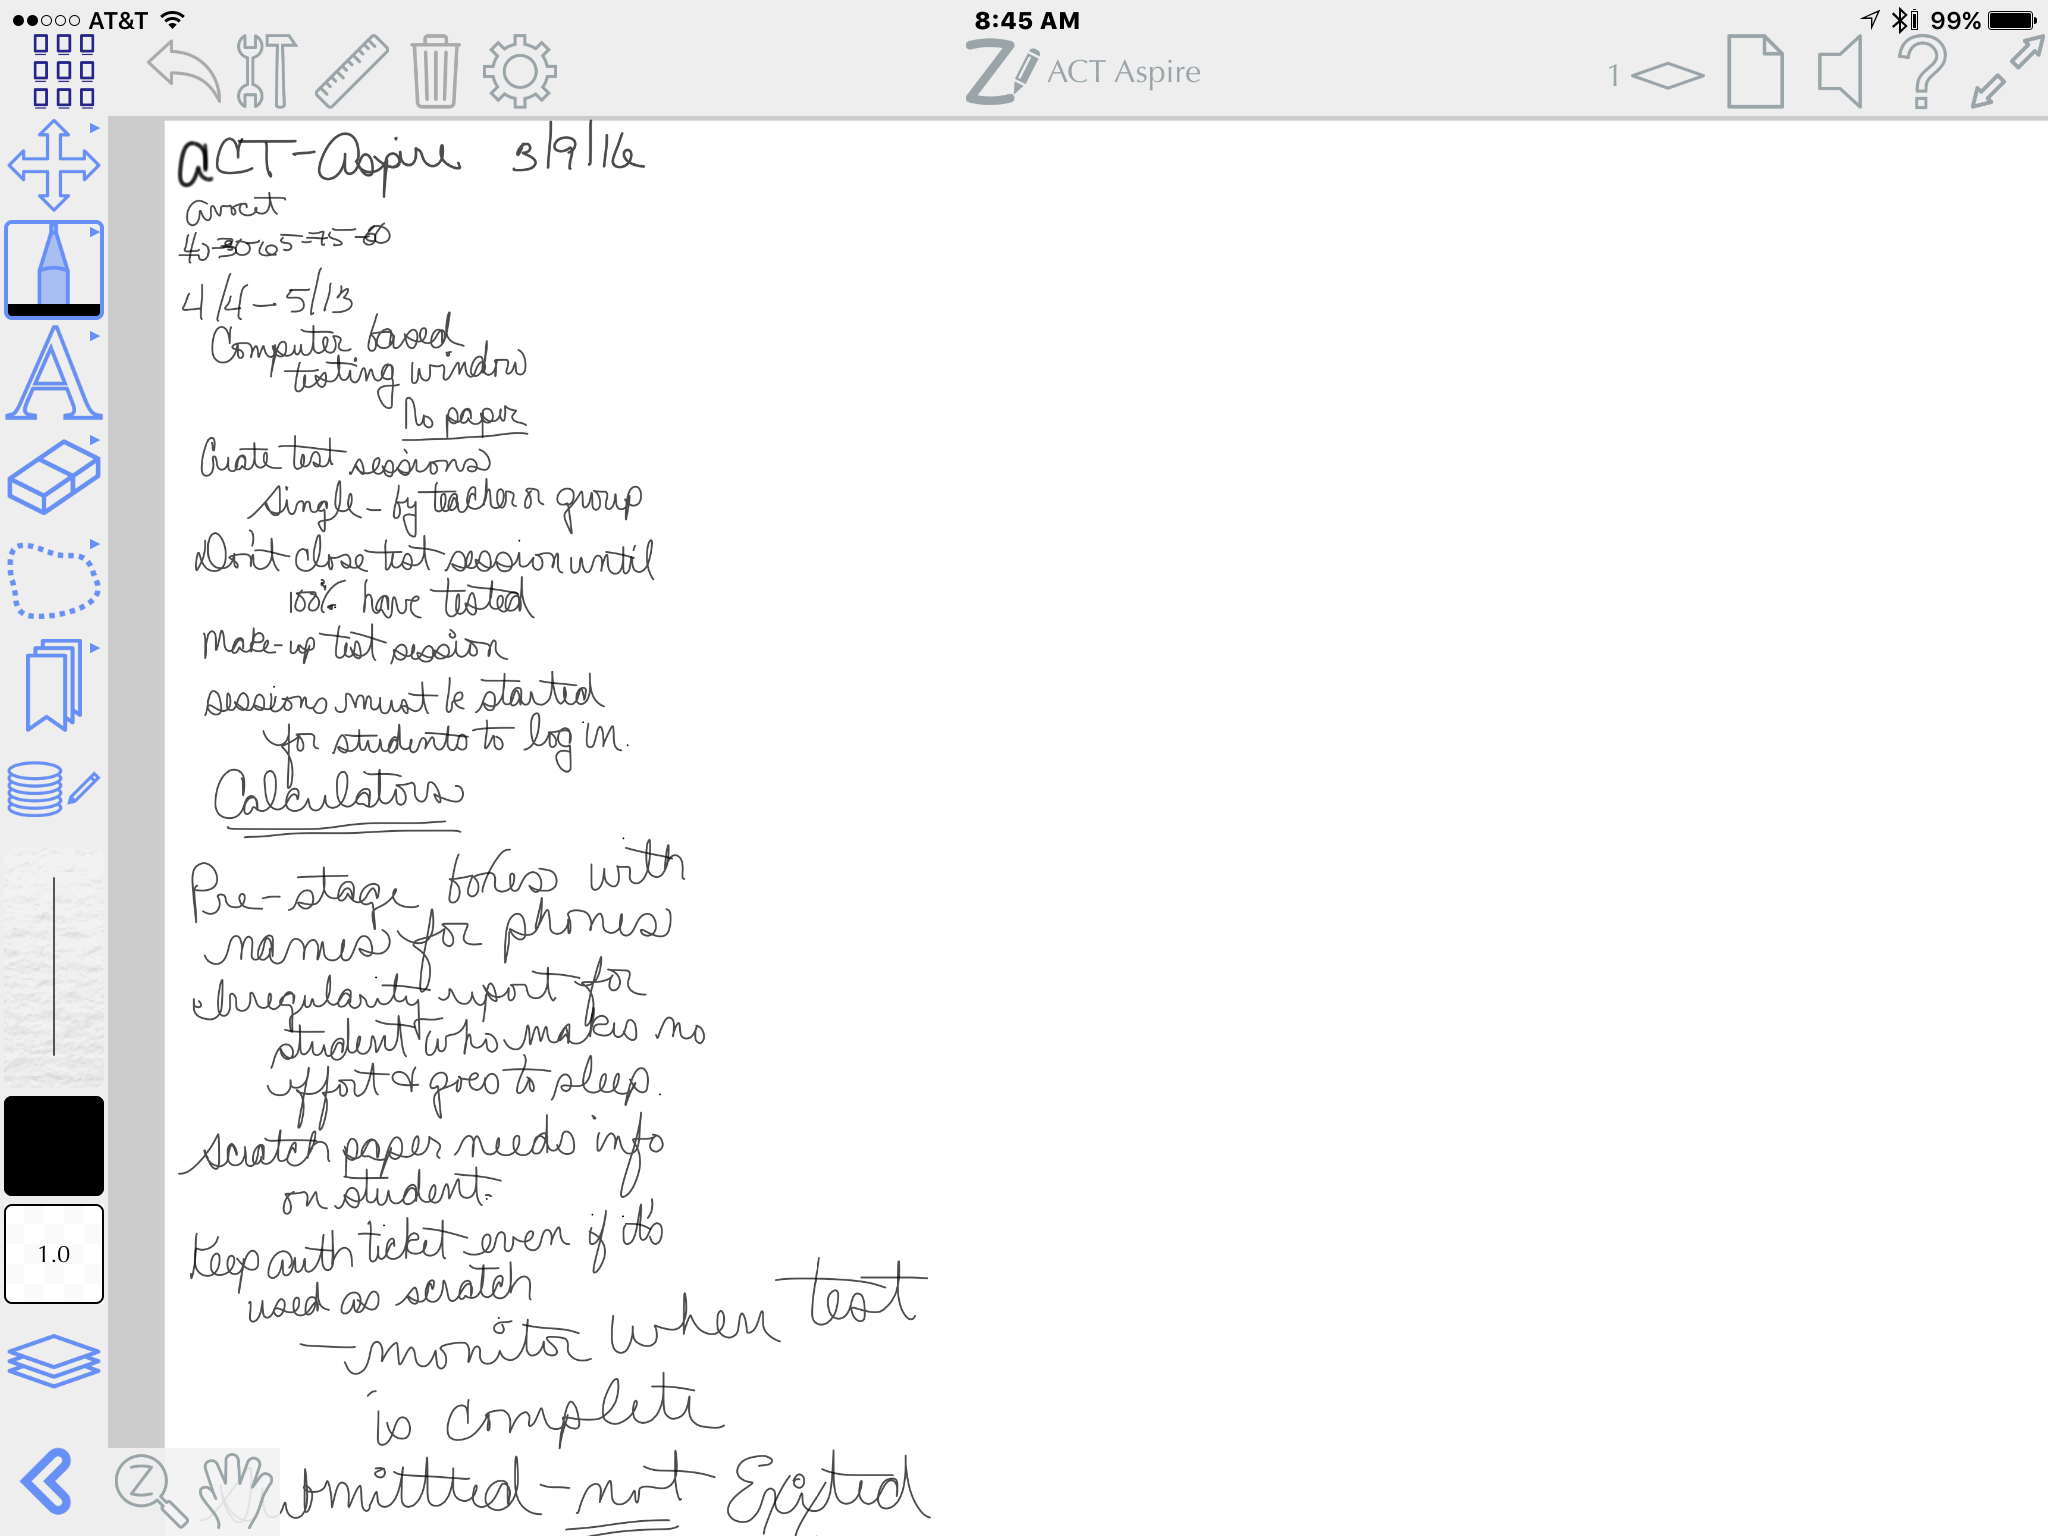 AT&T 8:45 AM 99%
ACT Aspire 1
ACT-Aspire 3/9/16
avocet
40-30-65-75-60
4/4 - 5/13
Computer based
testing window
No paper
Create test sessions
Single - by teacher or group
Don't close test session until
100% have tested
Make-up test session
sessions must be started
for students to log in.
Calculators
Pre-stage boxes with
names for phones
Irregularity report for
student who makes no
effort & goes to sleep.
Scratch paper needs info
on student.
Keep auth ticket even if it's
used as scratch
1.0
- monitor when test
is complete
bmitted - not Exited